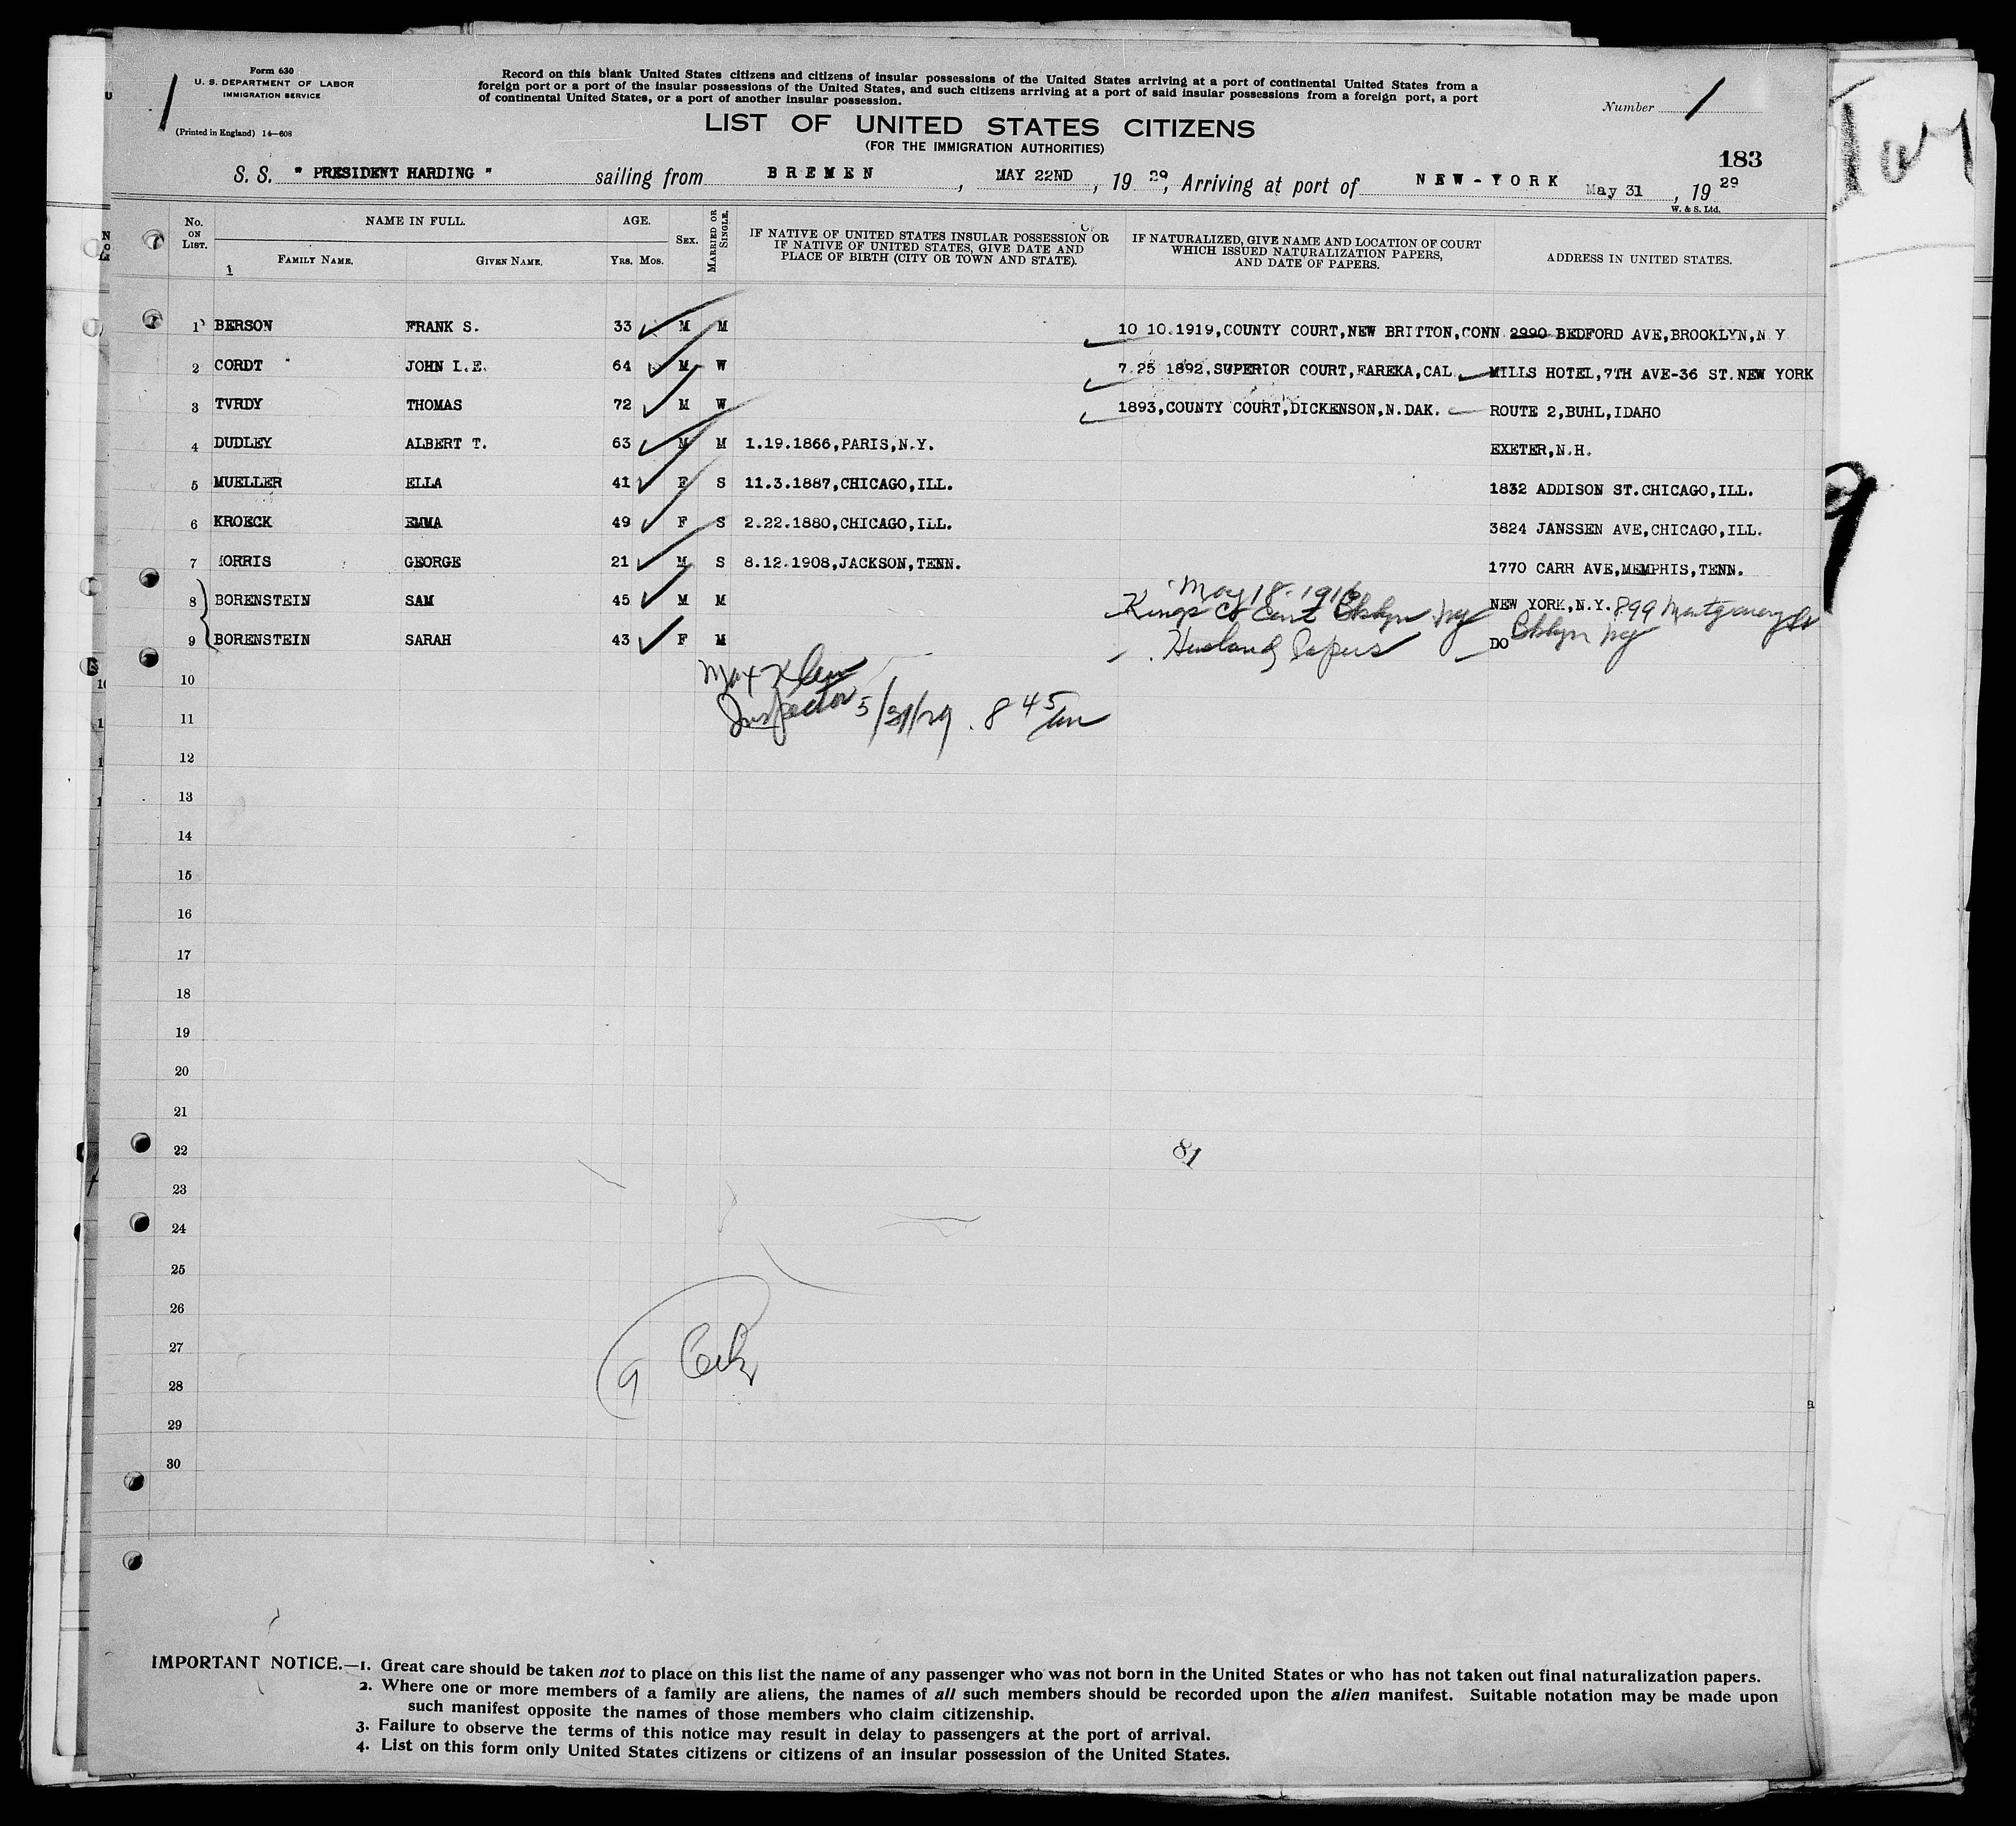 Form 630
U. S. DEPARTMENT OF LABOR
IMMIGRATION SERVICE
(Printed in England) 14—608
1
Record on this blank United States citizens and citizens of insular possessions of the United States arriving at a port of continental United States from a
foreign port or a port of the insular possessions of the United States, and such citizens arriving at a port of said insular possessions from a foreign port, a port
of continental United States, or a port of another insular possession.
Number 1
LIST OF UNITED STATES CITIZENS
(FOR THE IMMIGRATION AUTHORITIES)
183
S. S. " PRESIDENT HARDING " sailing from BREMEN, MAY 22ND, 19 29, Arriving at port of NEW-YORK May 31, 19 29
W. & S. Ltd.
No. ON LIST. NAME IN FULL. FAMILY NAME. GIVEN NAME. AGE. YRS. MOS. SEX. MARRIED OR SINGLE. IF NATIVE OF UNITED STATES INSULAR POSSESSION OR IF NATIVE OF UNITED STATES, GIVE DATE AND PLACE OF BIRTH (CITY OR TOWN AND STATE). IF NATURALIZED, GIVE NAME AND LOCATION OF COURT WHICH ISSUED NATURALIZATION PAPERS, AND DATE OF PAPERS. ADDRESS IN UNITED STATES.
1
1 BERSON FRANK S. 33 M M 10 10.1919,COUNTY COURT,NEW BRITTON,CONN 2990 BEDFORD AVE,BROOKLYN,N Y
2 CORDT JOHN L.E. 64 M W 7.25 1892,SUPERIOR COURT,EAREKA,CAL MILLS HOTEL,7TH AVE-36 ST.NEW YORK
3 TVRDY THOMAS 72 M W 1893,COUNTY COURT,DICKENSON,N.DAK. ROUTE 2,BUHL,IDAHO
4 DUDLEY ALBERT T. 63 M M 1.19.1866,PARIS,N.Y. EXETER,N.H.
5 MUELLER ELLA 41 F S 11.3.1887,CHICAGO,ILL. 1832 ADDISON ST.CHICAGO,ILL.
6 KROECK EMMA 49 F S 2.22.1880,CHICAGO,ILL. 3824 JANSSEN AVE,CHICAGO,ILL.
7 MORRIS GEORGE 21 M S 8.12.1908,JACKSON,TENN. 1770 CARR AVE,MEMPHIS,TENN.
May 18-1916
8 BORENSTEIN SAM 45 M M Kings Co Court Bklyn Ny NEW YORK,N.Y. 899 Montgomery St
Bklyn Ny
9 BORENSTEIN SARAH 43 F M Husbands Papers DO
10 Max Klein
11 Inspector 5/31/29. 8 45 am
12
13
14
15
16
17
18
19
20
21
22 81
23
24
25
26
27
28 9
29
30
IMPORTANT NOTICE.—1. Great care should be taken not to place on this list the name of any passenger who was not born in the United States or who has not taken out final naturalization papers.
2. Where one or more members of a family are aliens, the names of all such members should be recorded upon the alien manifest. Suitable notation may be made upon
such manifest opposite the names of those members who claim citizenship.
3. Failure to observe the terms of this notice may result in delay to passengers at the port of arrival.
4. List on this form only United States citizens or citizens of an insular possession of the United States.